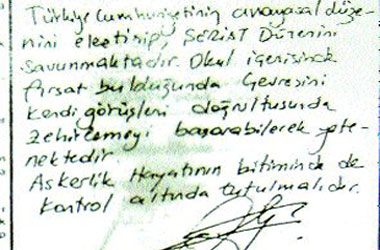 Türkiye Cumhuriyetinin anayasal düze-
nini eleştirip, ŞERİST Düzenini
savunmaktadır. Okul içerisinde
fırsat bulduğunda çevresini
kendi görüşleri doğrultusunda
zehirlemeyi başarabilerek yete-
nektedir.
Askerlik Hayatının bitiminde de
kontrol altında tutulmalıdır.